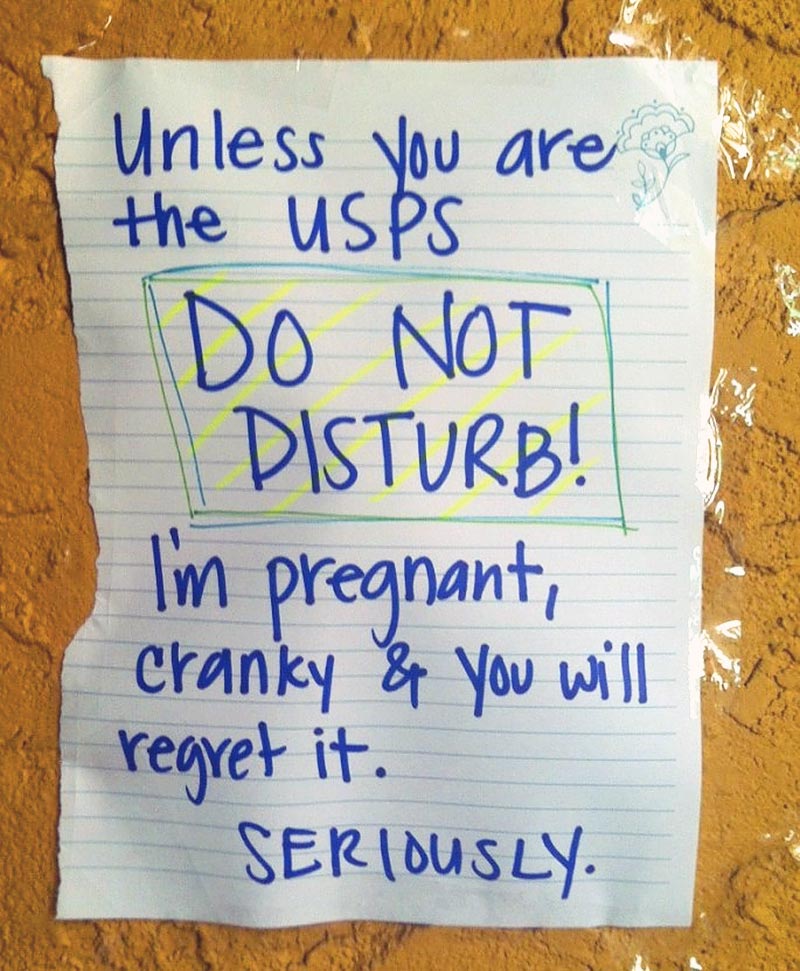 Unless you are
the USPS
DO NOT
DISTURB!
I'm pregnant,
cranky & you will
regret it.
SERIOUSLY.